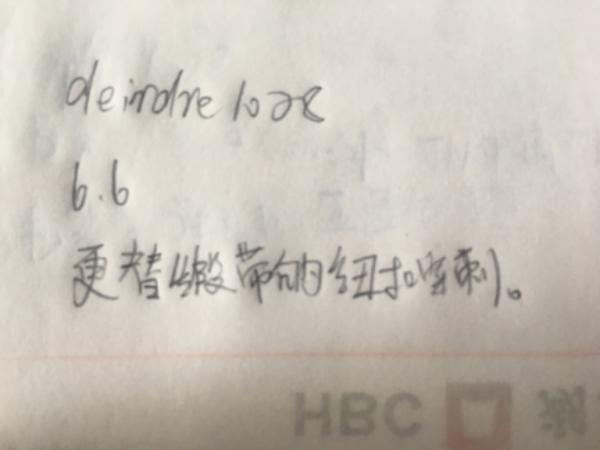 deirdre1028
6.6
更替缎带的纽扣穿刺。
HBC